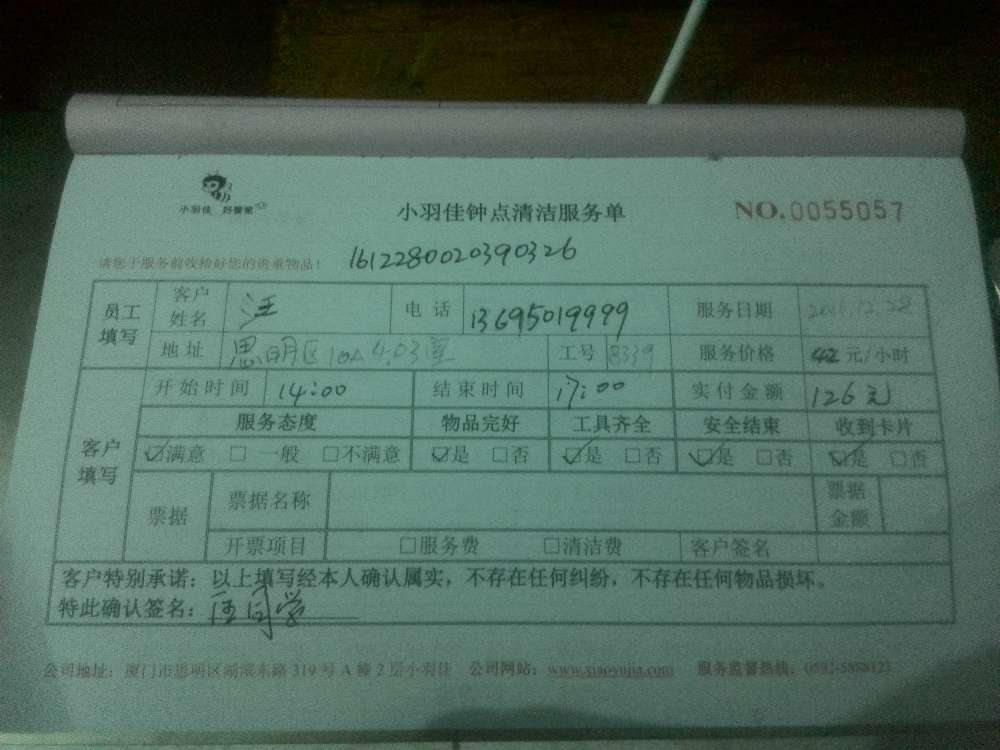 小羽佳 好管家
小羽佳钟点清洁服务单
NO.0055057
请您于服务前收拾好您的贵重物品!
1612280020390326
员工填写 客户姓名 汪 电话 13695019999 服务日期 2016.12.28
地址 思明区 工号 8339 服务价格 42元/小时
客户填写 开始时间 14:00 结束时间 17:00 实付金额 126元
服务态度 物品完好 工具齐全 安全结束 收到卡片
☑满意 □一般 □不满意 ☑是 □否 ☑是 □否 ☑是 □否 ☑是 □否
票据 票据名称 票据金额
开票项目 □服务费 □清洁费 客户签名
客户特别承诺:以上填写经本人确认属实,不存在任何纠纷,不存在任何物品损坏。
特此确认签名:汪同学
公司地址:厦门市思明区湖滨东路319号A幢2层小羽佳 公司网站:www.xiaoyujia.com 服务监督热线:0592-5888123